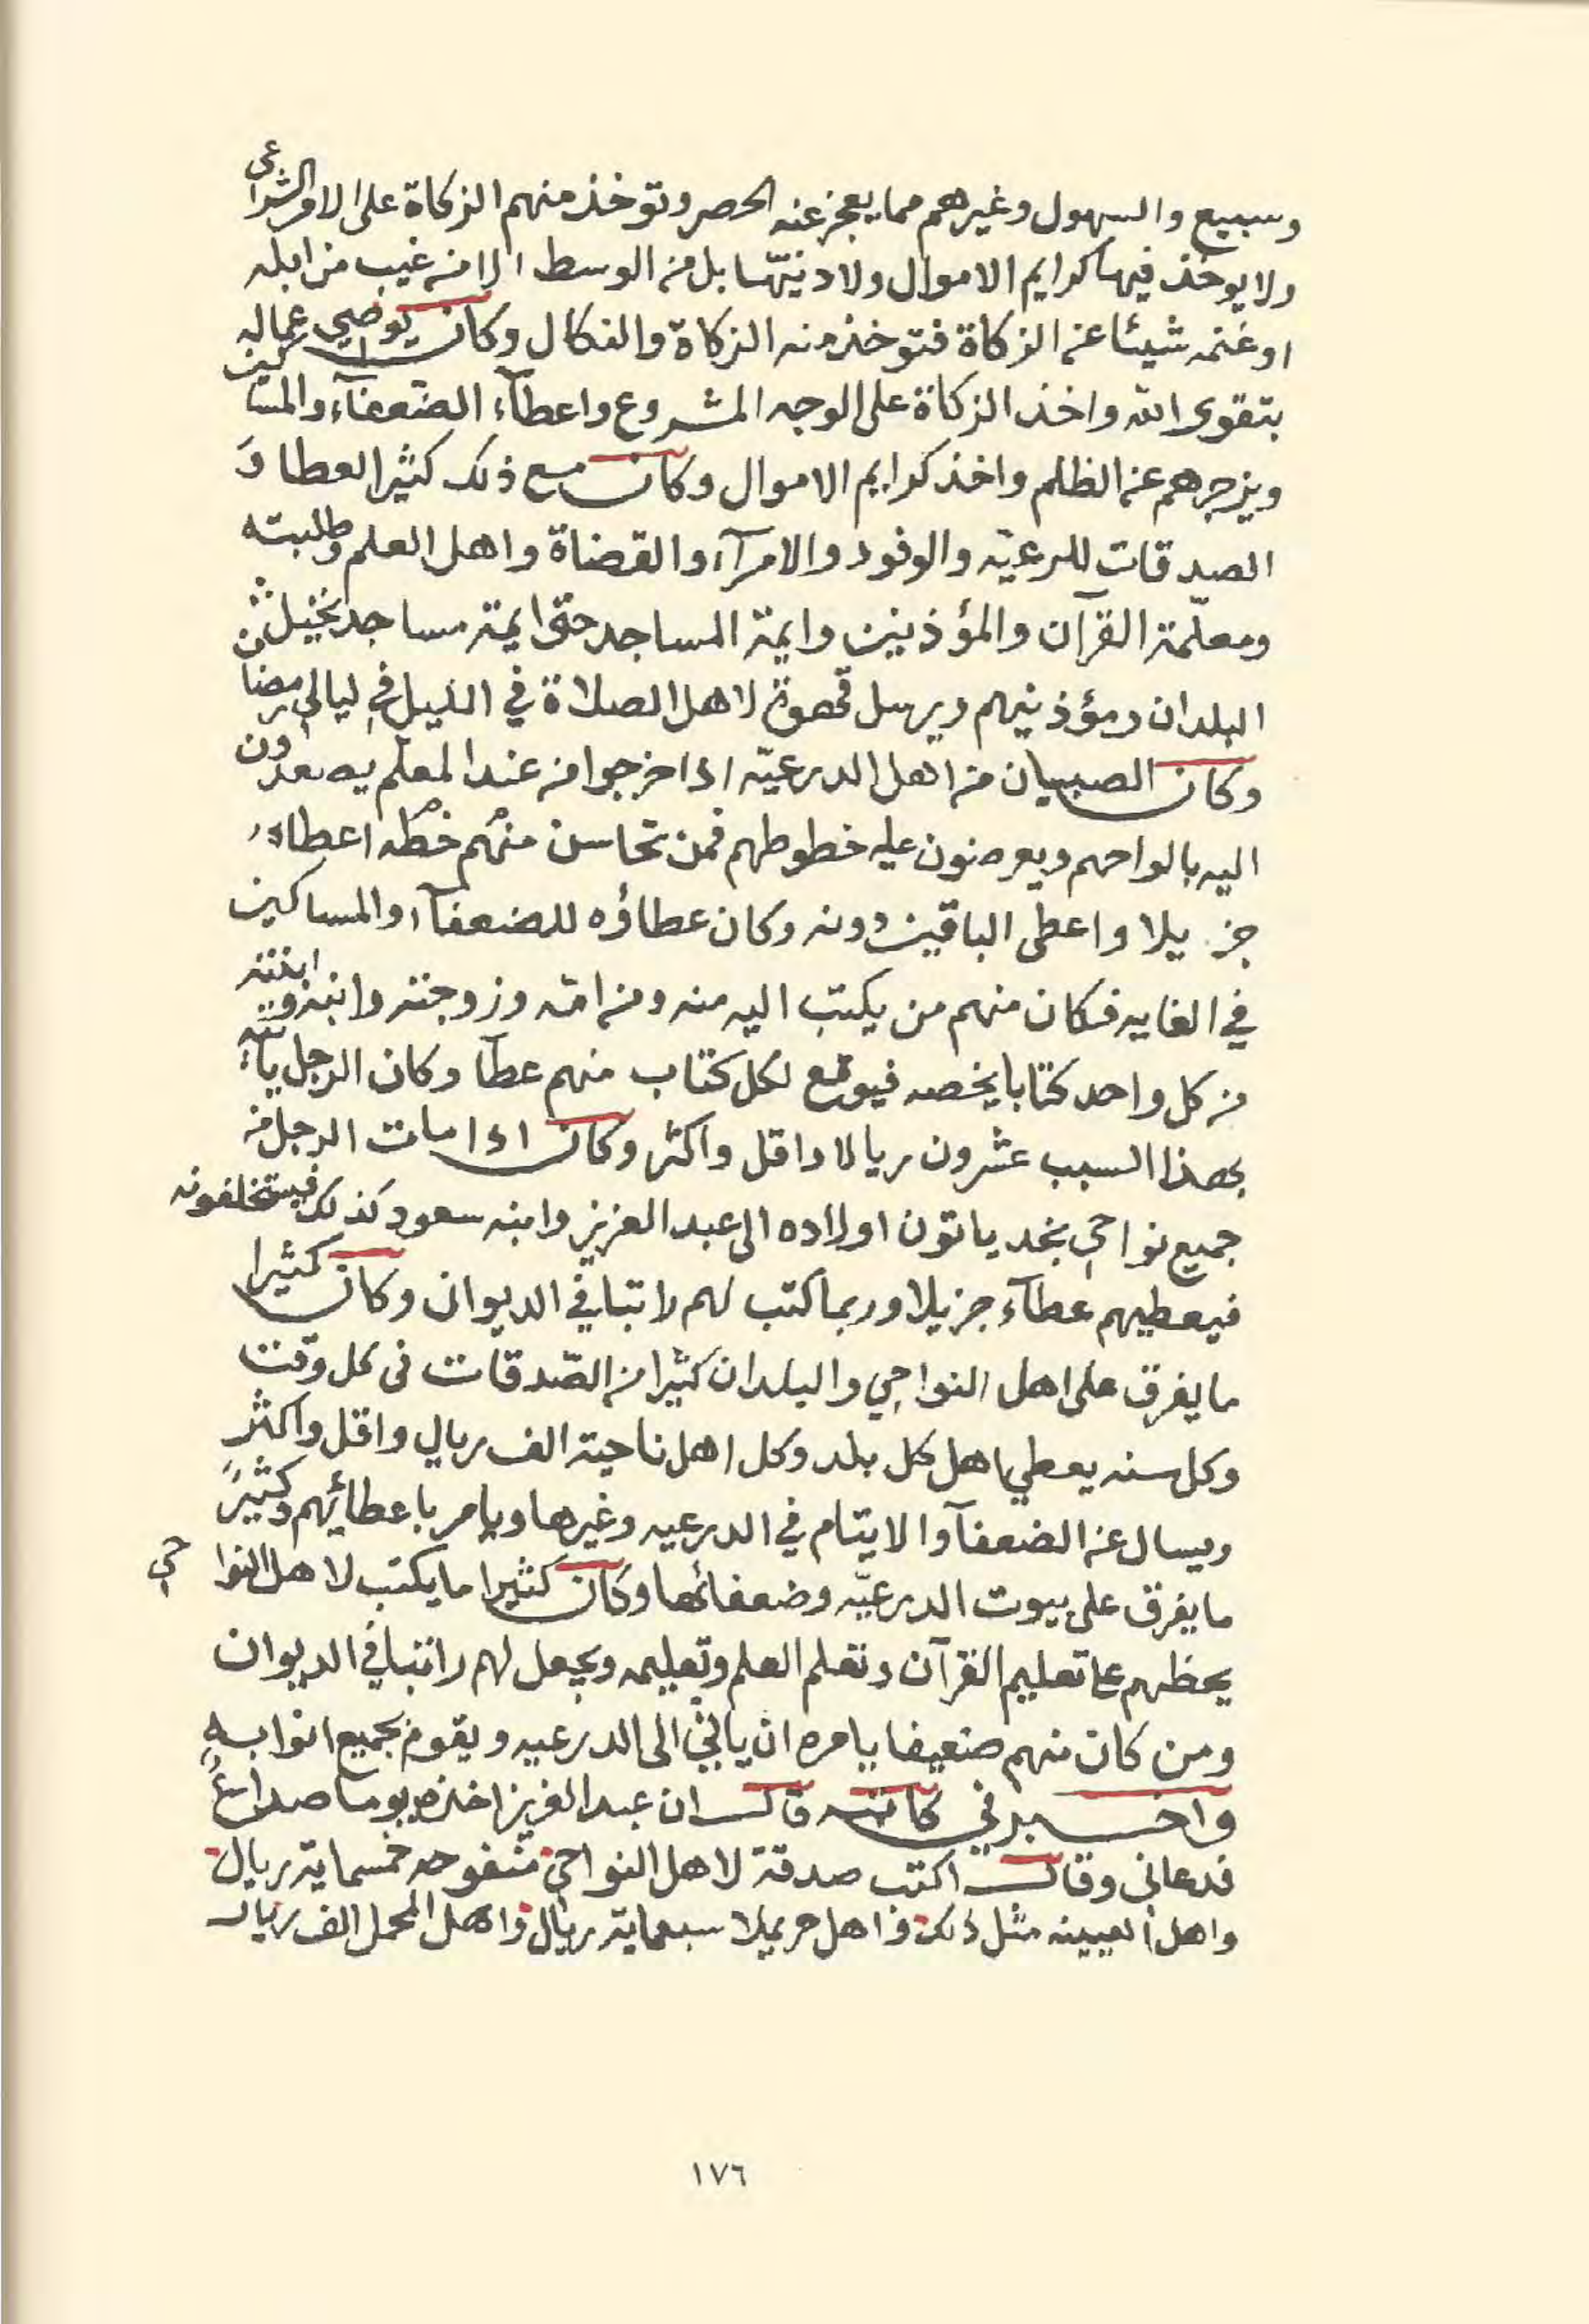 وسبيع والسهول وغيرهم مما يعجز عنه الحصر وتوخذ منهم الزكاة على الامر الشرعي
ولا يوخذ فيها كرايم الاموال ولا دنيّها بل من الوسط الا من غيب من ابله
او غنمه شيئا عن الزكاة فتوخذ منه الزكاة والنكال وكان يوصي عماله
بتقوى الله واخذ الزكاة على الوجه المشروع واعطآء الضعفآء والمساكين
ويزجرهم عن الظلم واخذ كرايم الاموال وكان مع ذلك كثير العطا و
الصدقات للرعيّه والوفود والامرآء والقضاة واهل العلم وطلبته
ومعلّمة القرآن والمؤذنين وايمة المساجد حتى ايمة مساجد نخيل
البلدان ومؤذنيهم ويرسل قهوة لاهل الصلاة في الليل في ليالي رمضان
وكان الصبيان من اهل الدرعيّه اذا خرجوا من عند المعلم يصعدون
اليه بالواحهم ويعرضون عليه خطوطهم فمن تحاسن منهم خطه اعطاه
جزيلا واعطى الباقين دونه وكان عطاؤه للضعفآء والمساكين
في الغايه فكان منهم من يكتب اليه منه ومن امّه وزوجته وابنه وابنته
من كل واحد كتابا يخصه فيوقع لكل كتاب منهم عطآ وكان الرجل ياتيه
بهذا السبب عشرون ريالا واقل واكثر وكان اذا مات الرجل من
جميع نواحي نجد ياتون اولاده الى عبد العزيز وابنه سعود كذلك فيستخلفونه
فيعطيهم عطآء جزيلا وربما كتب لهم راتبا في الديوان وكان كثيرا
ما يفرق على اهل النواحي والبلدان كثيرا من الصّدقات في كل وقت
وكل سنه يعطي اهل كل بلد وكل اهل ناحية الف ريال واقل واكثر
ويسال عن الضعفآ والايتام في الدرعيه وغيرها ويامر باعطائهم وكثير
ما يفرق على بيوت الدرعيّه وضعفائها وكان كثيرا ما يكتب لاهل النواحي
يحظهم على تعليم القرآن وتعلم العلم وتعليمه ويجعل لهم راتبا في الديوان
ومن كان منهم ضعيفا يامره ان ياتي الى الدرعيه ويقوم بجميع انوابه
واخبرني كاتبه قال ان عبد العزيز اخذه يوما صداعٌ
فدعاني وقال اكتب صدقة لاهل النواحي منفوحه خمسماية ريال
واهل العيينه مثل ذلك واهل حريملا سبعماية ريال واهل المحمل الف ريال
١٧٦